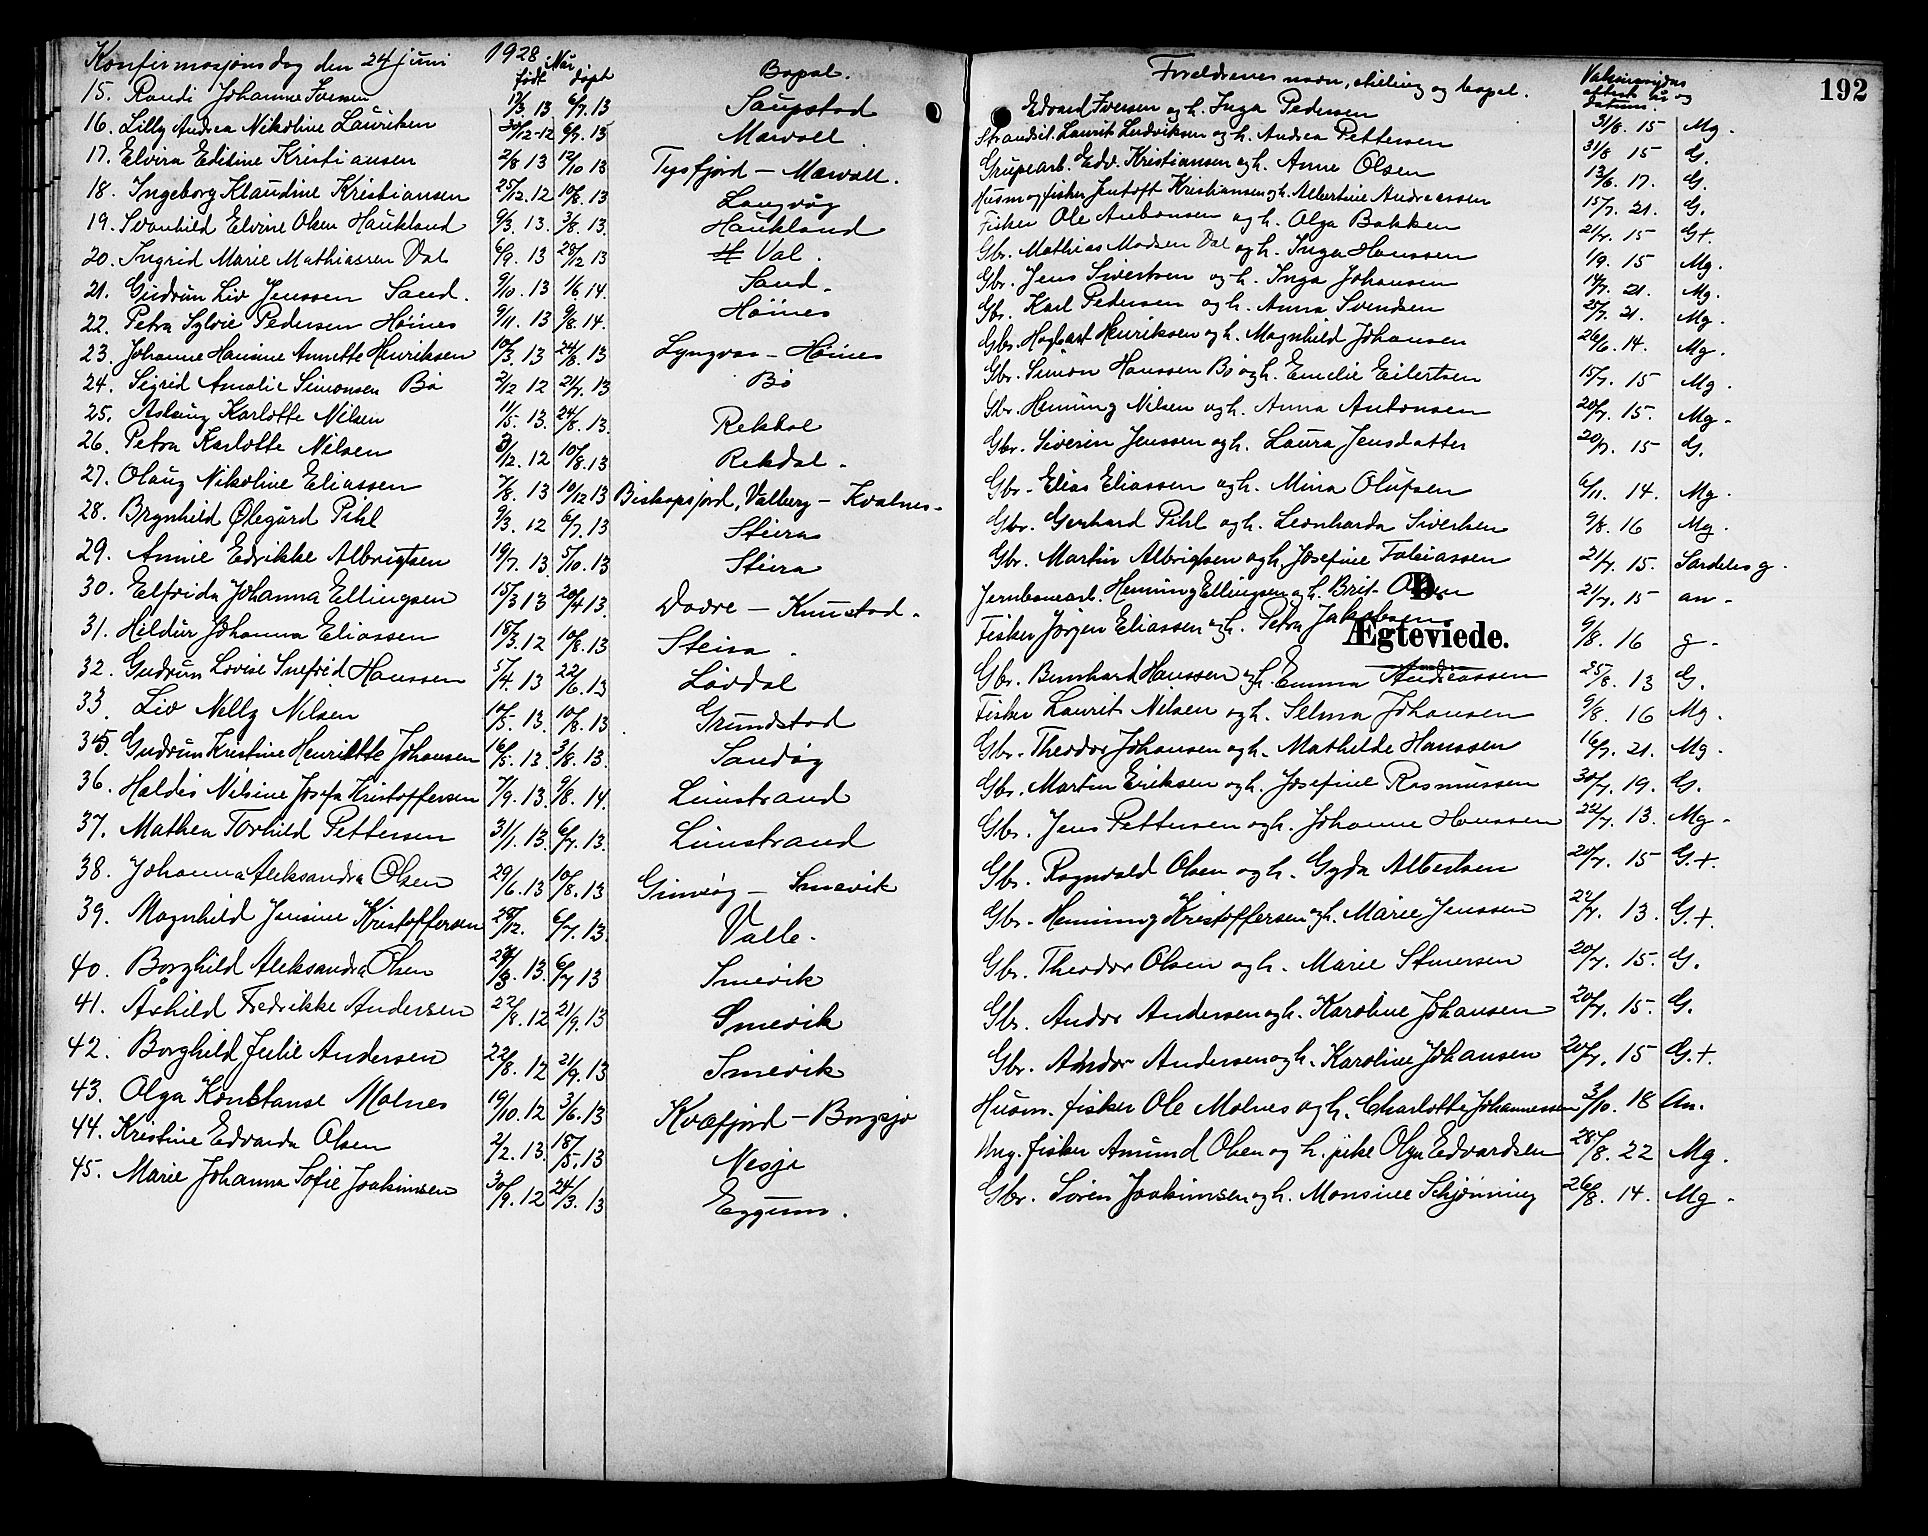 Konfirmasjonsdag den 24 juni 1928
192
Når
født døpt Bopal. Foreldrenes navn, stilling og bopel. Vaksinasjons attest av og datum.
15. Randi Johanne Iversen 12/3 13 6/7. 13 Saupstad Edvard Iversen og h. Inga Pedersen 31/8. 15 Mg.
16. Lilly Andrea Nikoline Lauritsen 30/12-12 6/7. 13 Mærvoll Strandsit. Laurits Ludviksen og h. Andrea Pettersen 31/8 15 G.
17. Elvira Edisine Kristiansen 2/8 13 12/10 13 Tysfjord - Mærvoll. Grupearb. Edv. Kristiansen og h. Anne Olsen 13/6. 17. G.
18. Ingeborg Klaudine Kristiansen 25/12. 12 10/8. 13 Langvåg Husm og fisker Jentoft Kristiansen og h. Albertine Andreassen 15/7. 21. G.
19. Svanhild Elvine Olsen Haukland 9/3. 13. 3/8. 13. Haukland Fisker Ole Antonsen og h. Olga Bakken 21/7. 15 G+.
20. Ingrid Marie Mathiassen Val 6/9. 13 28/12 13 H Val. Gbr. Mathias Madsen Val og h. Inga Hanssen 1/9. 15 Mg.
21. Gudrun Liv Jenssen Sand. 9/10. 13 1/6 14. Sand. Gbr. Jens Sivertsen og h. Inga Johansen 14/7. 21. Mg.
22. Petra Sylvie Pedersen Høines 9/11. 13 9/8. 14. Høines Gbr. Karl Pedersen og h. Anna Svendsen 25/7. 21. Mg.
23. Johanne Hansine Annette Henriksen 10/3. 13 24/8. 13 Lyngvær - Høines Gbr. Hagbart Henriksen og h. Magnhild Johansen 26/6. 14. Mg.
24. Sigrid Amalie Simonsen Bø 2/12 12 21/7. 13 Bø Gbr. Simon Hanssen Bø og h. Emelie Eilertsen 15/7. 15 Mg.
25. Aslaug Karlotte Nilsen 11/5. 13. 24/8. 13. Rekdal Gbr. Henning Nilsen og h. Anna Antonsen 20/7. 15. Mg.
26. Petra Karlotte Nilsen 3/12. 12 10/8. 13 Rekdal. Gbr. Siverin Jenssen og h. Laura Jensdatter 20/7. 15 G.
27. Olaug Nikoline Eliassen 7/8. 13 10/12 13 Biskopsfjord, Valberg - Kvalnes. Gbr. Elias Eliassen og h. Mina Olufsen 6/11. 14. Mg.
28. Brynhild Ølegård Pihl 9/3. 12 6/7. 13 Steira Gbr. Gerhard Pihl og h. Leonharda Sivertsen 9/8. 16 Mg.
29. Annie Edrikke Albrigtsen 19/7. 13. 5/10. 13 Steira Gbr. Martin Albrigtsen og h. Josefine Tobiassen 21/7. 15. Særdeles g.
30. Elfrida Johanna Ellingsen 15/3 13 20/4 13. Dovre - Knutstad. Jernbanearb. Henning Ellingsen og h. Brit Olsen 21/7. 15 an.
D.
Ægteviede.
31. Hildur Johanna Eliassen 18/3. 12 10/8. 13 Steira. Fisker Jørgen Eliassen og h. Petra Jakobsen 9/8. 16 g.
32. Gudrun Lovise Snefrid Hanssen 5/4. 13 22/6. 13 Lavdal Gbr. Bernhard Hanssen og h. Emma Andreassen 25/8. 13 G.
33. Liv Nelly Nilsen 10/5. 13. 10/8. 13. Grundstad Fisker Laurits Nilsen og h. Selma Johansen 9/8. 16 Mg.
35. Gudrun Kristine Henriette Johansen 16/5. 13. 3/8. 13. Sandøy Gbr. Theodor Johansen og h. Mathilde Hanssen 16/7. 21. Mg.
36. Haldis Nilsine Josefa Kristoffersen 7/9. 13. 9/8. 14. Limstrand Gbr. Martin Eriksen og h. Josefine Rasmussen 30/7. 19. G.
37. Mathea Torhild Pettersen 31/1. 13. 6/7. 13. Limstrand Gbr. Jens Pettersen og h. Johanne Hanssen 22/7. 13. Mg.
38. Johanna Aleksandra Olsen 29/6. 13 10/8. 13 Gimsøy - Smevik Gbr. Ragnvald Olsen og h. Gyda Albertsen 20/7. 15 G.+.
39. Magnhild Jensine Kristoffersen 28/12. 6/7. 13. Valle. Gbr. Henning Kristoffersen og h. Marie Jenssen 22/7. 13. G.+.
40. Borghild Aleksandra Olsen 24/3. 13. 6/7 13 Smevik Gbr. Theodor Olsen og h. Marie Stinersen 20/7. 15. G.
41. Åshild Fredrikke Andersen 22/8. 12 21/9. 13 Smevik Gbr. Andor Andersen og h. Karoline Johansen 20/7. 15. G.
42. Borghild Julie Andersen 22/8. 12 21/9. 13 Smevik Gbr. Andor Andersen og h. Karoline Johansen 20/7. 15 G.+.
43. Olga Konstanse Molnes 19/10. 12 3/6. 13 Kvæfjord - Borgsjø Husm. fisker Ole Molnes og h. Charlotte Johannessen 3/10. 18 An.
44. Kristine Edvarda Olsen 2/2. 13. 18/5. 13 Nesje Ung. fisker Amund Olsen og h. pike Olga Edvardsen 28/8. 22 Mg.
45. Marie Johanna Sofie Joakimsen 30/9. 12 24/3. 13 Eggum. Gbr. Søren Joakimsen og h. Monsine Schjønning 26/8. 14. Mg.